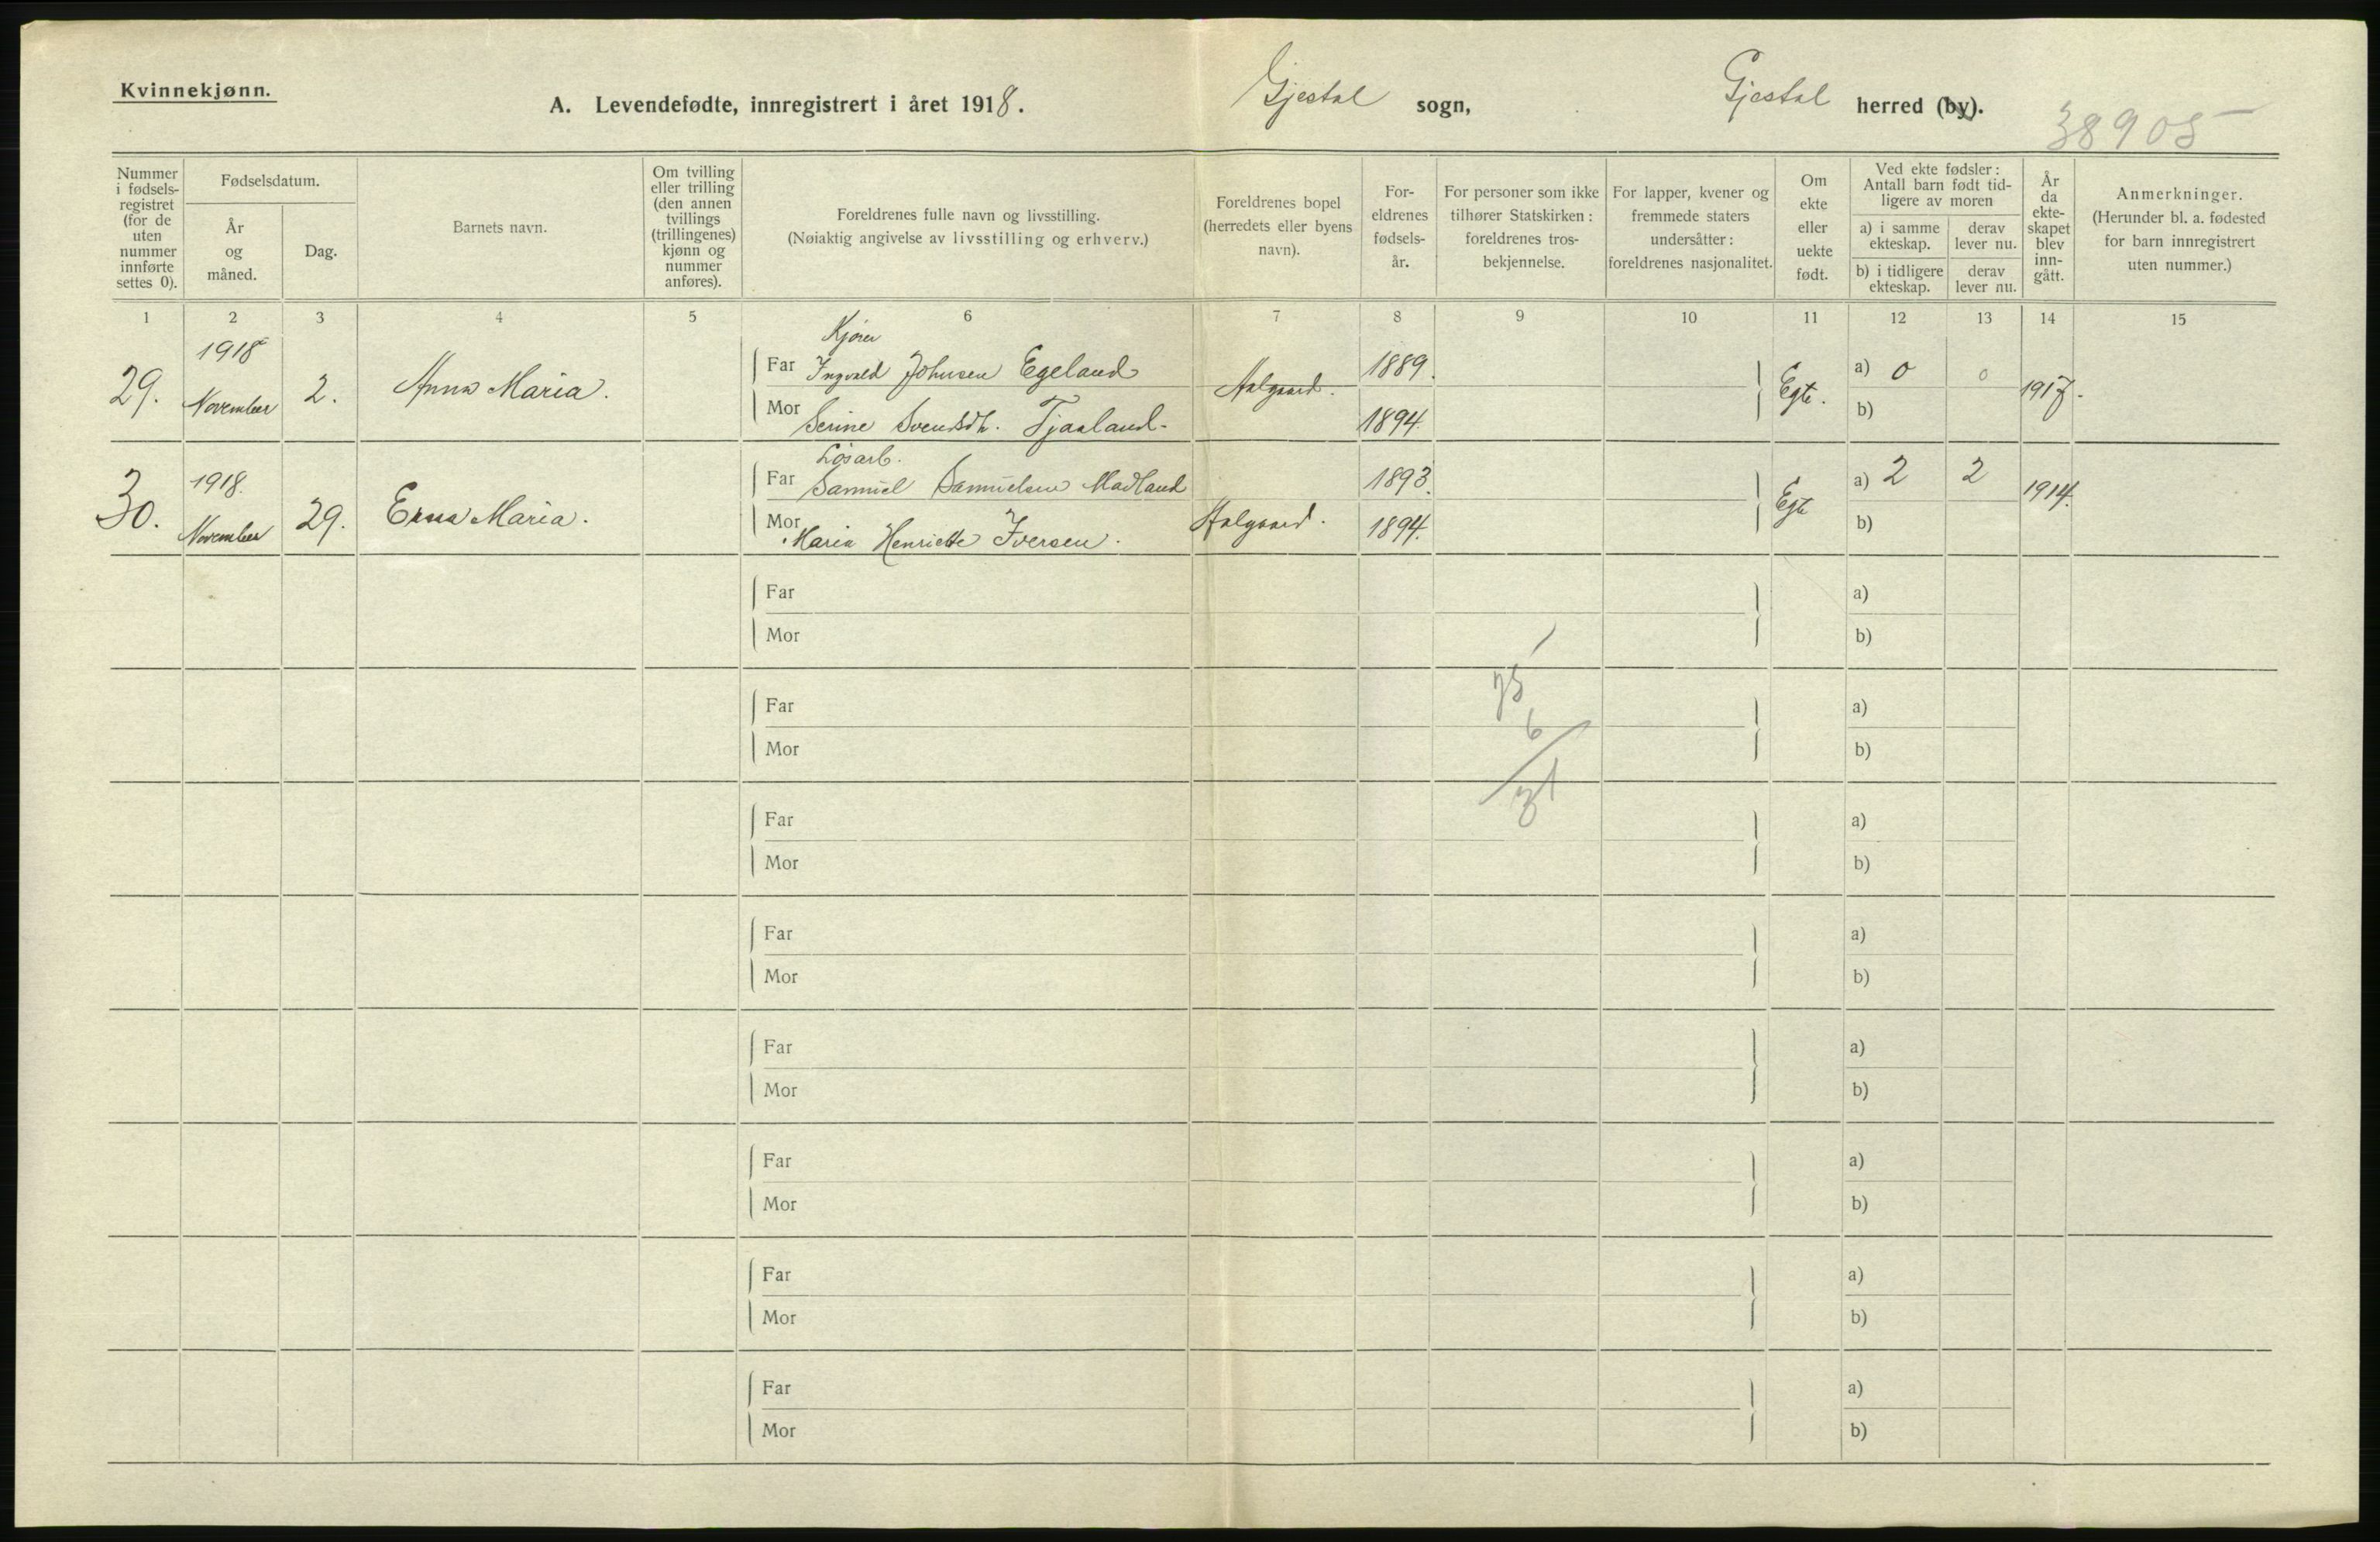 Kvinnekjønn.
A. Levendefødte, innregistrert i året 1918.
Gjestal sogn,
Gjestal herred (by).
38905
Nummer i fødsels-registret (for de uten nummer innførte settes 0).
Fødselsdatum.
År og måned.
Dag.
Barnets navn.
Om tvilling eller trilling (den annen tvillings (trillingenes) kjønn og nummer anføres).
Foreldrenes fulle navn og livsstilling.
(Nøiaktig angivelse av livsstilling og erhverv.)
Foreldrenes bopel (herredets eller byens navn).
For-eldrenes fødsels-år.
For personer som ikke tilhører Statskirken: foreldrenes tros-bekjennelse.
For lapper, kvener og fremmede staters undersåtter: foreldrenes nasjonalitet.
Om ekte eller uekte født.
Ved ekte fødsler: Antall barn født tid-ligere av moren
a) i samme ekteskap.
derav lever nu.
b) i tidligere ekteskap.
derav lever nu.
År da ekte-skapet blev inn-gått.
Anmerkninger.
(Herunder bl. a. fødested for barn innregistrert uten nummer.)
1 2 3 4 5 6 7 8 9 10 11 12 13 14 15
Kjører
29. 1918 November 2. Anna Maria.
Far Ingvald Johnsen Egeland 1889.
Aalgaard. Egte. a) 0 0 1917.
Mor Serine Svendsdtr. Tjaaland. 1894. b)
Løsarb.
30. 1918. November 29. Erna Maria.
Far Samuel Samuelsen Madland 1893.
Aalgaard. Egte a) 2 2 1914.
Mor Maria Henriette Iversen. 1894. b)
Far a)
Mor b)
Far a)
Mor b)
6
31
Far a)
Mor b)
Far a)
Mor b)
Far a)
Mor b)
Far a)
Mor b)
Far a)
Mor b)
Far a)
Mor b)